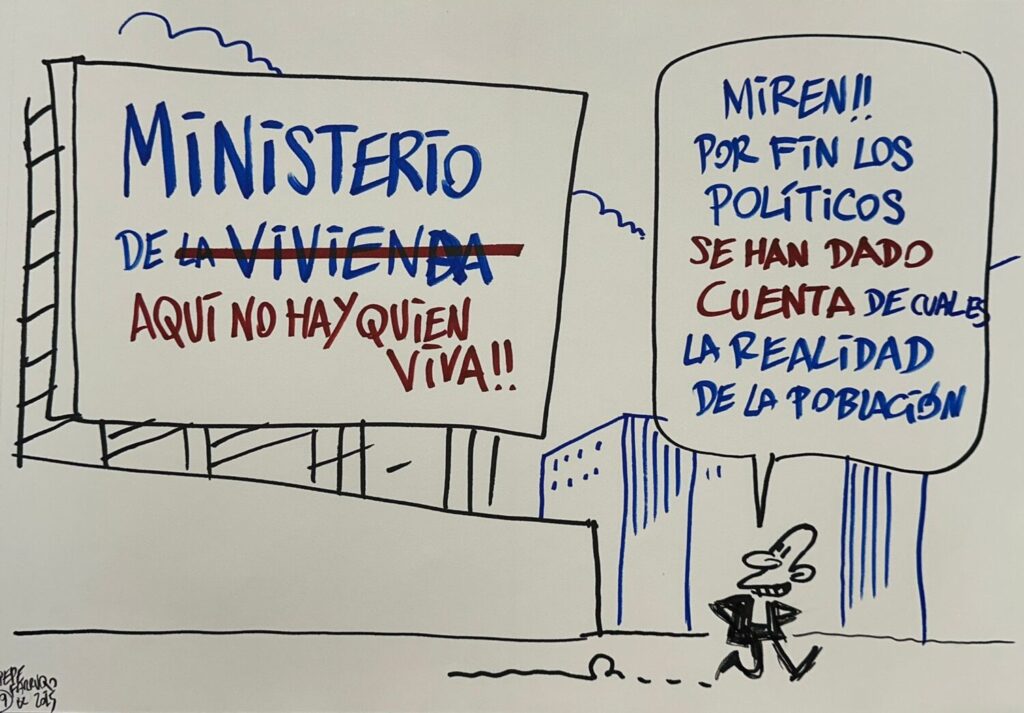 MINISTERIO
DE LA VIVIENDA
AQUÍ NO HAY QUIEN
VIVA!!
MIREN!!
POR FIN LOS
POLÍTICOS
SE HAN DADO
CUENTA DE CUALES
LA REALIDAD
DE LA POBLACIÓN
PEPE
FARRUQO
DE 2025